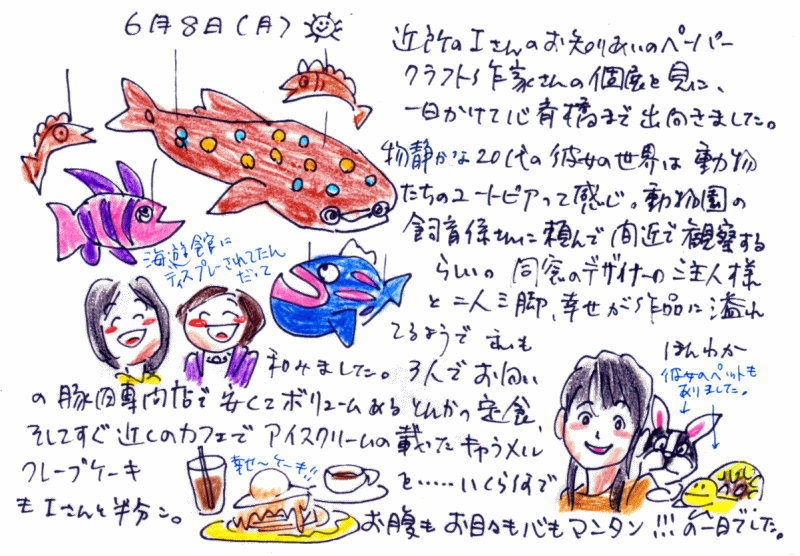 6月8日(月)
近所のIさんのお知りあいのペーパー
クラフト作家さんの個展を見に、
一日かけて心斎橋まで出向きました。
物静かな20代の彼女の世界は動物
たちのユートピアって感じ。動物園の
飼育係さんに頼んで間近で観察する
らしい。同窓のデザイナーのご主人様
と二人三脚、幸せが作品に溢れ
てるようで
和みました。3人でお
の豚肉専門店で安くてボリュームあるとんかつ定食、
そしてすぐ近くのカフェでアイスクリームの載ったキャラメル
クレープケーキ
を……いくら何で
もIさんと半分こ。
お腹もお目々も心もマンタン!!!の一日でした。
海遊館に
ディスプレーされてたん
だって
ほんわか
彼女のペットも
ありました。
幸せ〜ケーキ!!